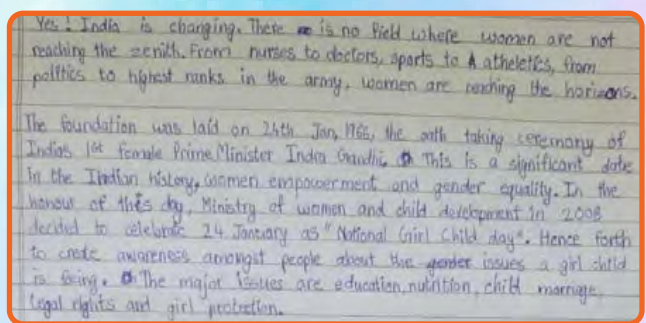 Yes! India is changing. There is no field where women are not
reaching the zenith. From nurses to doctors, sports to atheletics, from
politics to highest ranks in the army, women are reaching the horizons.
The foundation was laid on 24th Jan, 1966, the oath taking ceremony of
Indias 1st female Prime Minister Indra Gandhi. This is a significant date
in the Indian history, women empowerment and gender equality. In the
honour of this day, Ministry of women and child development in 2008
decided to celebrate 24 January as "National Girl Child day". Hence forth
to create awareness amongst people about the issues a girl child
is facing. The major issues are education, nutrition, child marriage,
legal rights and girl protection.